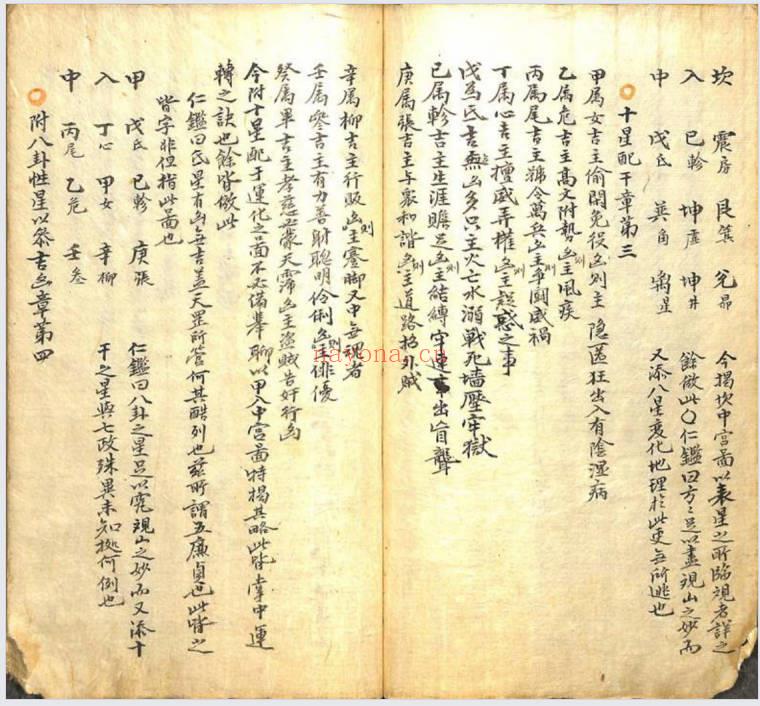 坎 震房 艮箕 兌昴 今揭坎中宮圖以表星之所臨視者詳之
入 巳軫 坤虛 坤井 餘倣此〇仁鑑曰方〻足以盡視山之妙而
中 戊氐 巽角 离星 又添八星変化地理於此更無所逃也
十星配干章第三
甲属女吉主偷閑免役凶則主隐匿狂出入有陰湿病
乙属危吉主高文附勢凶主風疾
丙属尾吉主號令萬兵凶主爭鬪威禍
丁属心吉主擅威弄權凶則主疑惑之事
戊為氐吉無凶多只主火亡水溺戰死墻壓牢獄
己属軫吉主生涯贍足凶則主結縛牢逮事出盲聾
庚属張吉主与衆和諧凶則主道路招外賊
辛属柳吉主行販凶則主蹇脚又中無現者
壬属參吉主有力善射聰明伶俐凶則主俳優
癸属畢吉主孝慈正蒙天霈凶主盜賊告奸行凶
今附十星配于運化之圖不必備擧聊以甲入中宮圖特揭其略此皆掌中運
轉之訣也餘皆倣此
仁鑑曰氐星有凶無吉盖天罡所管何其酷列也玆所謂五廉貞也此皆之
皆字非但指此圖也
甲 戊氐 己軫 庚張 仁鑑曰八卦之星足以究視山之妙而又添十
入 丁心 甲女 辛柳 干之星與七政殊異未知拠何例也
中 丙尾 乙危 壬參
附八卦性星以叅吉凶章第四
nayona.cn